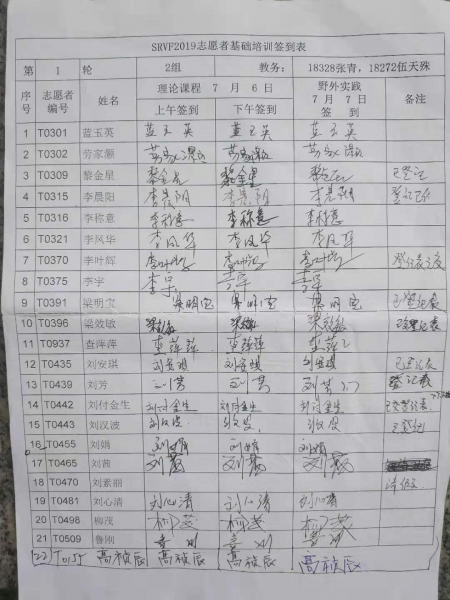 SRVF2019志愿者基础培训签到表
第 1 轮 2组 教务: 18328张青, 18272伍天殊
序号 志愿者编号 姓名 理论课程 7 月 6 日 上午签到 下午签到 野外实践 7 月 7 日 签 到 备注
1 T0301 蓝玉英 蓝玉英 蓝玉英 蓝玉英
2 T0302 劳家灏 劳家灏 劳家灏 劳家灏
3 T0309 黎金星 黎金星 黎金星 已登记
4 T0315 李晨阳 李晨阳 李晨阳 李晨阳
5 T0316 李称意 李称意 李称意 李称意
6 T0321 李风华 李风华 李风华 李风华
7 T0370 李叶辉 李叶辉 李叶辉 李叶辉
8 T0375 李宇 李宇 李宇 李宇
9 T0391 梁明宝 梁明宝 梁明宝 梁明宝 已登记表
10 T0396 梁效敏 梁效敏 梁效敏 梁效敏 已登记表
11 T0937 查萍萍 查萍萍 查萍萍 查萍
12 T0435 刘安琪 刘安琪 刘安琪 刘安琪 已登记表
13 T0439 刘芳 刘芳 刘芳 刘芳 登记表
14 T0442 刘付金生 刘付金生 刘付金生 刘付金生
15 T0443 刘汉波 刘汉波 刘汉波 刘汉波 已登记
16 T0455 刘娟 刘娟 刘娟 刘娟
17 T0465 刘茜 刘茜 刘茜 刘茜
18 T0470 刘素丽 请假
19 T0481 刘心清 刘心清 刘心清 刘心清
20 T0498 柳茂 柳茂 柳茂 柳茂
21 T0509 鲁刚 鲁刚 鲁刚 鲁刚
22 高祯辰 高祯辰 高祯辰 高祯辰